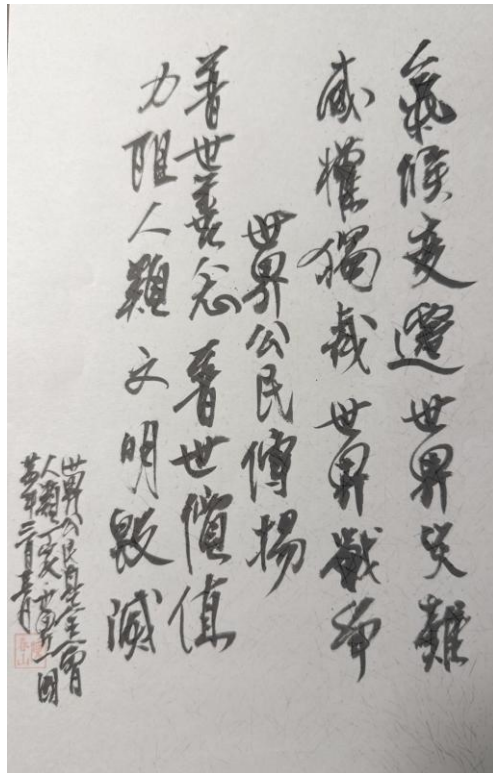 氣候变遷世界災難
威權獨裁世界戰争
世界公民傳揚
普世善念普世價值
力阻人類文明毀滅
世界公民自先生會
人類一家世界一國
年三月